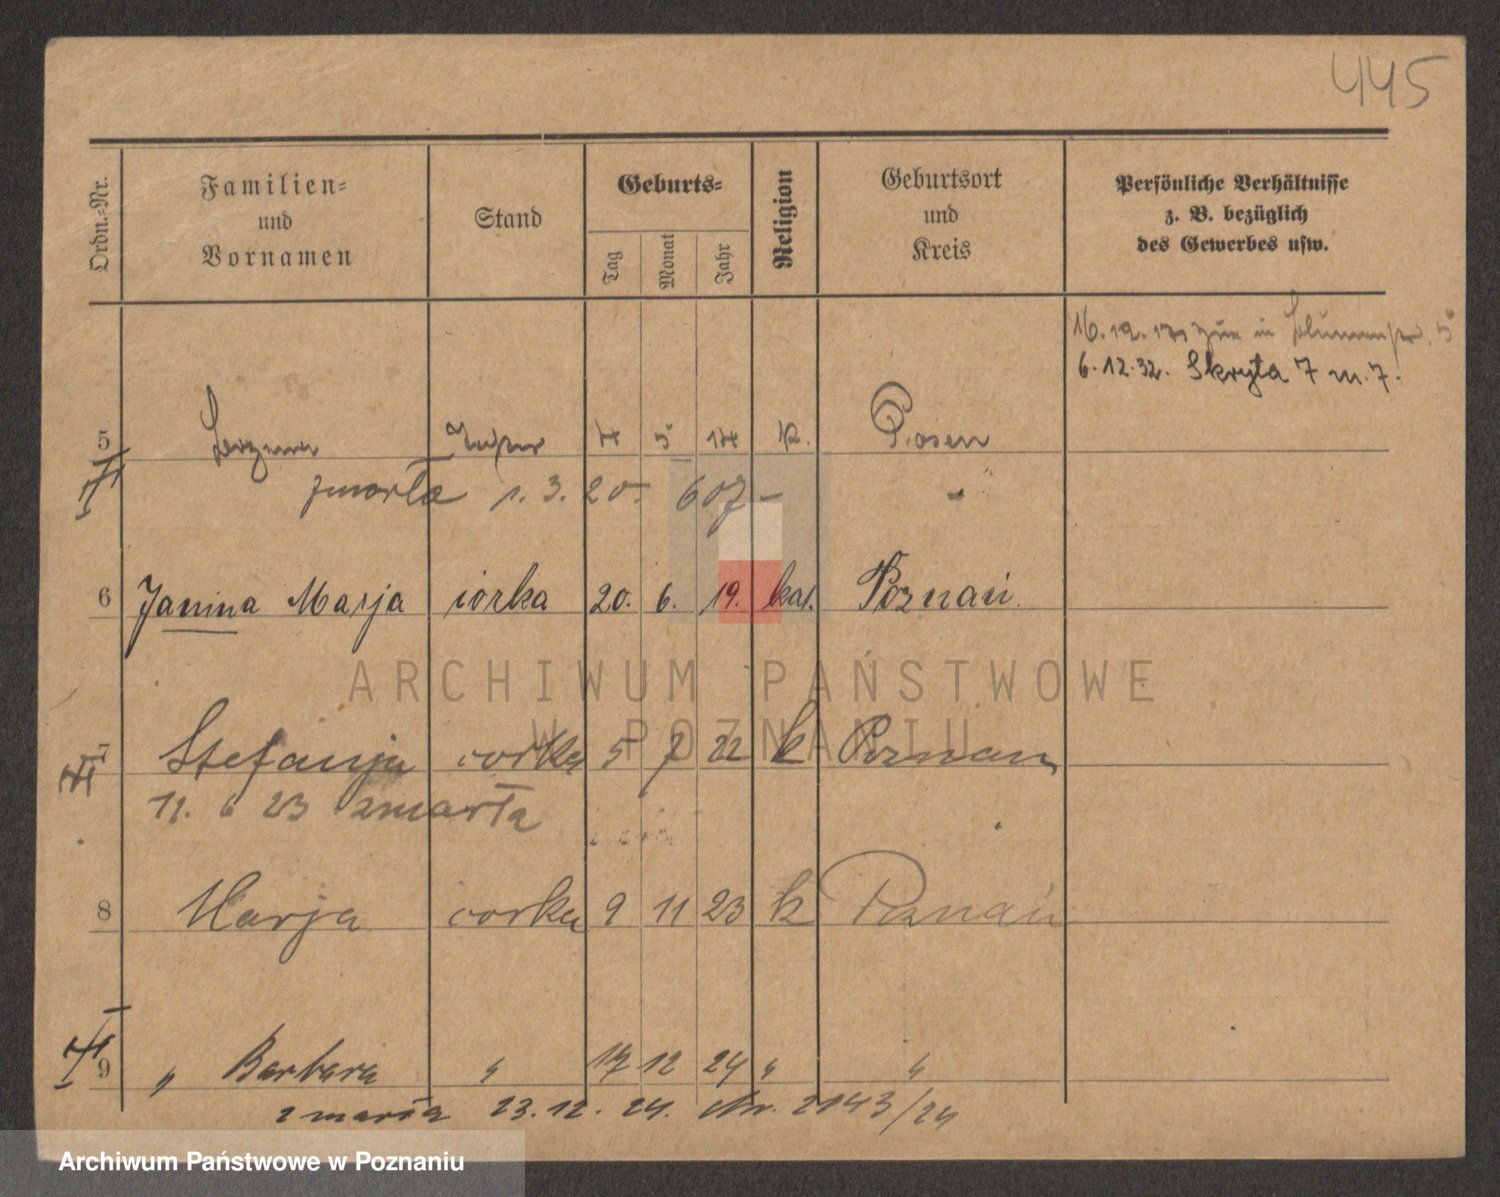 445
Ordn.-Nr.
Familien-
und
Vornamen
Stand
Geburts-
Tag
Monat
Jahr
Religion
Geburtsort
und
Kreis
Persönliche Verhältnisse
z. B. bezüglich
des Gewerbes usw.
16. 12. in 5
6. 12. 32. Skryta 7 m. 7.
5 5 17 k. Posen
zmarła 1. 3. 20 - 607 - "
6 Janina Marja córka 20. 6. 19. kat. Poznań.
ARCHIWUM PAŃSTWOWE
W POZNANIU
7 Stefanja córka 5 7 22 k Poznań
11. 6 23 zmarła
8 Marja córka 9 11 23 k Poznań
9 " Barbara " 17 12 24 " "
zmarła 23. 12. 24. Nr. 2143/24
Archiwum Państwowe w Poznaniu